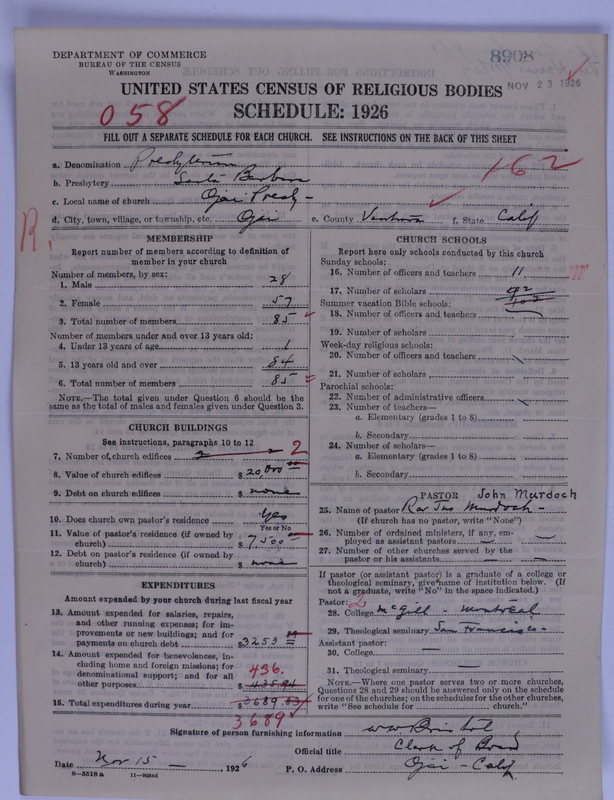 8908
DEPARTMENT OF COMMERCE
BUREAU OF THE CENSUS
WASHINGTON
NOV 23 1926
UNITED STATES CENSUS OF RELIGIOUS BODIES
058
SCHEDULE: 1926
FILL OUT A SEPARATE SCHEDULE FOR EACH CHURCH. SEE INSTRUCTIONS ON THE BACK OF THIS SHEET
a. Denomination Presbyterian
162
b. Presbytery Santa Barbara
c. Local name of church Ojai Presby -
d. City, town, village, or township, etc. Ojai e. County Ventura f. State Calif
R.
MEMBERSHIP
Report number of members according to definition of
member in your church
Number of members, by sex:
1. Male 28
2. Female 57
3. Total number of members 85
Number of members under and over 13 years old:
4. Under 13 years of age 1
5. 13 years old and over 84
6. Total number of members 85
NOTE.—The total given under Question 6 should be
same as the total of males and females given under Question 3.
CHURCH BUILDINGS
See instructions, paragraphs 10 to 12
7. Number of church edifices 2 2
8. Value of church edifices $ 20,000 00
9. Debt on church edifices $ none
10. Does church own pastor's residence yes
Yes or No
11. Value of pastor's residence (if owned by
church) $ 7500
12. Debt on pastor's residence (if owned by
church) $ none
EXPENDITURES
Amount expended by your church during last fiscal year
13. Amount expended for salaries, repairs,
and other running expenses; for im-
provements or new buildings; and for
payments on church debt $ 3253
14. Amount expended for benevolences, in-
cluding home and foreign missions; for
denominational support; and for all
other purposes $ 436.
15. Total expenditures during year $ 3689
3689
CHURCH SCHOOLS
Report here only schools conducted by this church
Sunday schools:
16. Number of officers and teachers 11
17. Number of scholars 92
103
Summer vacation Bible schools:
18. Number of officers and teachers
19. Number of scholars
Week-day religious schools:
20. Number of officers and teachers
21. Number of scholars
Parochial schools:
22. Number of administrative officers
23. Number of teachers—
a. Elementary (grades 1 to 8)
b. Secondary
24. Number of scholars—
a. Elementary (grades 1 to 8)
b. Secondary
PASTOR John Murdoch
25. Name of pastor Rev Jno Murdoch -
(If church has no pastor, write "None")
26. Number of ordained ministers, if any, em-
ployed as assistant pastors —
27. Number of other churches served by the
pastor or his assistants —
If pastor (or assistant pastor) is a graduate of a college or
theological seminary, give name of institution below. (If
not a graduate, write "No" in the space indicated.)
Pastor: 2
28. College McGill - Montreal
29. Theological seminary San Francisco -
Assistant pastor:
30. College —
31. Theological seminary —
NOTE.—Where one pastor serves two or more churches,
Questions 28 and 29 should be answered only on the schedule
for one of the churches; on the schedules for the other churches,
write "See schedule for ........ church."
Signature of person furnishing information W W Bristol
Official title Clerk of Board
Date Nov 15 — , 1926 P. O. Address Ojai - Calif
8-5518 a